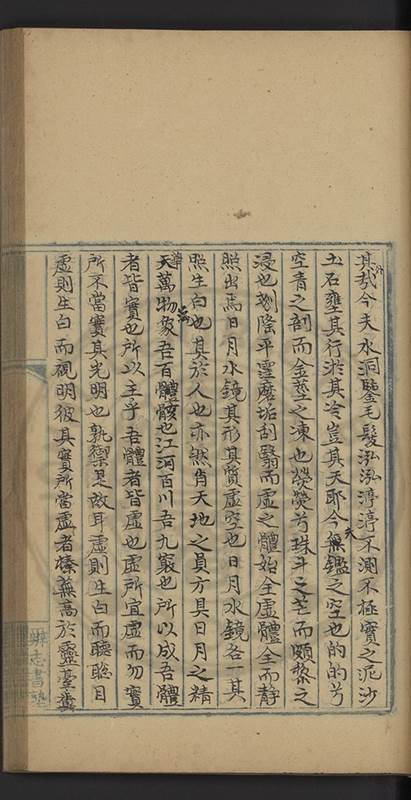 其哉今夫水洞鑒毛髮泓泓渟渟不測不極實之泥沙
土石壅其行淤其冷豈其天耶今夫鑑之空也的的兮
空青之剖而金莖之凍也熒熒兮珠斗之芒而頗黎之
浸也剗除平䨱磨垢刮翳而虛之體始全虛體全而靜
照出焉日月水鏡其形其質虛空也日月水鏡各一其
照生白也其於人也亦然肖天地之員方具日月之精
華萬物象吾百體骸也江河百川吾九竅也所以成吾體
者皆實也所以主乎吾體者皆虛也虛所宜虛而勿實
所不當實其光明也孰禦是故耳虛則生白而聽聰目
虛則生白而視明彼其實所當虛者榛蕪蒿於靈臺糞
辨志書塾